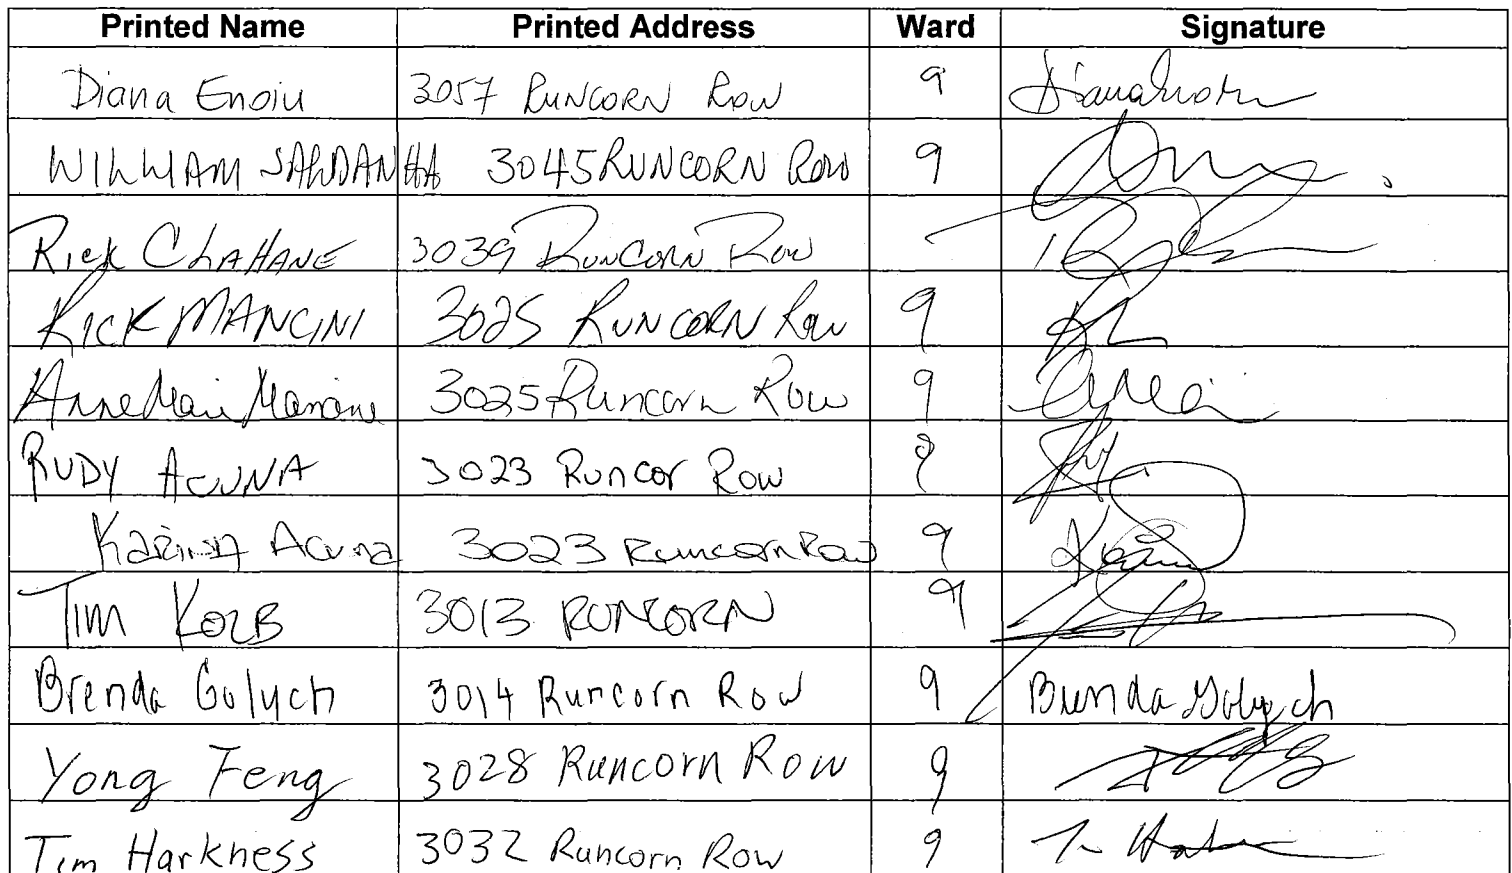 Printed Name Printed Address Ward Signature
Diana Enoiu 3057 RUNCORN ROW 9
WILLIAM SALDANHA 3045 RUNCORN ROW 9
Rick CLAHANE 3039 RUNCORN ROW
RICK MANCINI 3025 RUNCORN Row 9
3025 Runcorn Row 9
RUDY ACUNA 3023 Runcor Row 9
Karina Acuna 3023 Runcorn Row 9
TIM KOLB 3013 RUNCORN 9
Brenda Golych 3014 Runcorn Row 9 Brenda Golych
Yong Feng 3028 Runcorn Row 9
Tim Harkness 3032 Runcorn Row 9